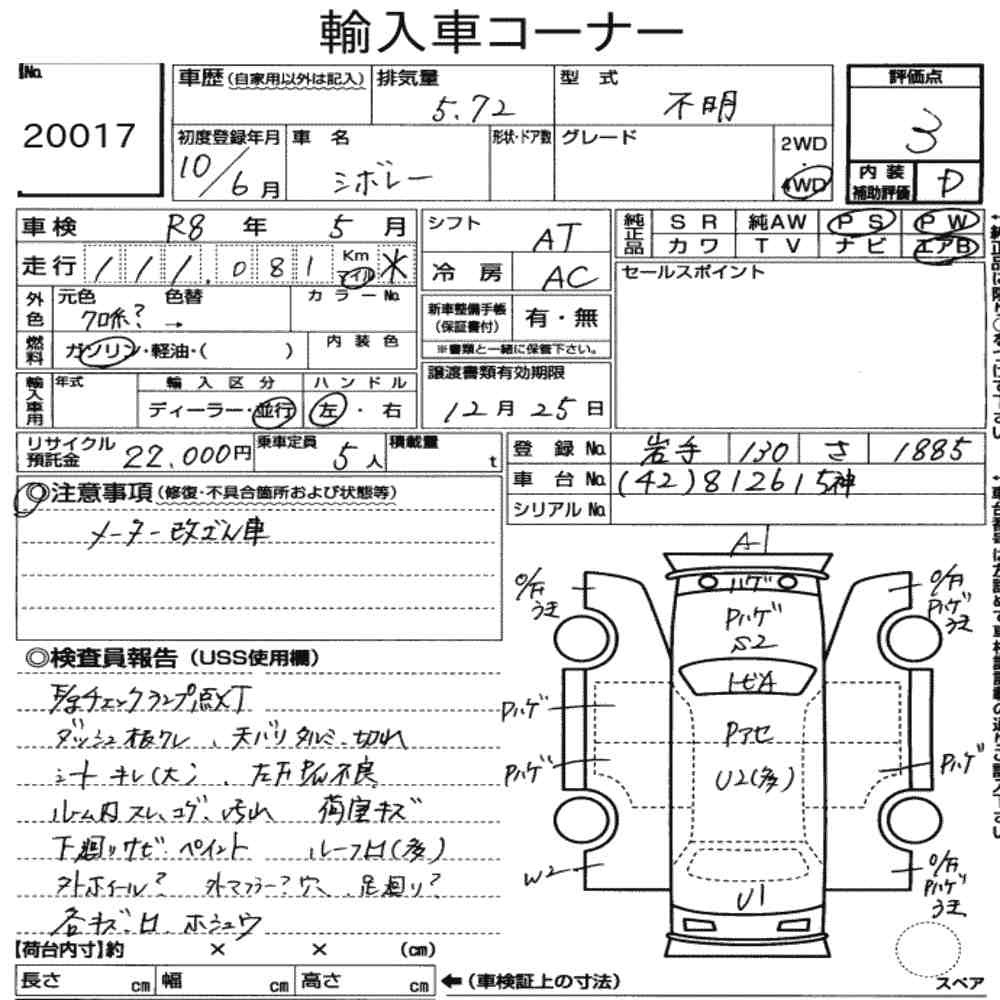 輸入車コーナー
No.
20017
車歴(自家用以外は記入)
排気量
5.72
型 式
不明
評価点
3
初度登録年月
10/6月
車 名
シボレー
形状・ドア数
グレード
2WD
4WD
内装
補助評価
D
車検 R8 年 5 月
走行 111,081 Km マイル ＊
シフト AT
冷 房 AC
純正品
SR 純AW PS PW
カワ TV ナビ エアB
セールスポイント
外色
元色 色替 カラーNo.
クロ系? →
燃料
ガソリン・軽油・( )
内装色
新車整備手帳
(保証書付)
有・無
※書類と一緒に保管下さい。
輸入車用
年式
輸入区分
ディーラー・並行
ハンドル
左・右
譲渡書類有効期限
12月25日
リサイクル
預託金
22,000円
乗車定員
5人
積載量
t
登 録 No. 岩手 130 さ 1885
車 台 No. (42)812615神
シリアル No.
◎注意事項(修復・不具合箇所および状態等)
メーター改ざん車
◎検査員報告(USS使用欄)
チェックランプ点灯
ダッシュ板ワレ、天バリタルミ、切れ
シートキレ(大)、左右 不良
ルーム内スレ、コゲ、汚れ 荷室キズ
下廻りサビ ペイント ルーフ凹(多)
外ホイール? 外マフラー?穴、足廻り?
各キズ、凹、ホシュウ
A1
ハゲ
Pハゲ
S2
トビA
Pアセ
U2(多)
U1
O/F
うき
O/F
Pハゲ
うき
Pハゲ
Pハゲ
Pハゲ
W2
O/F
Pハゲ
うき
スペア
【荷台内寸】約 × × (cm)
長さ cm 幅 cm 高さ cm
←(車検証上の寸法)